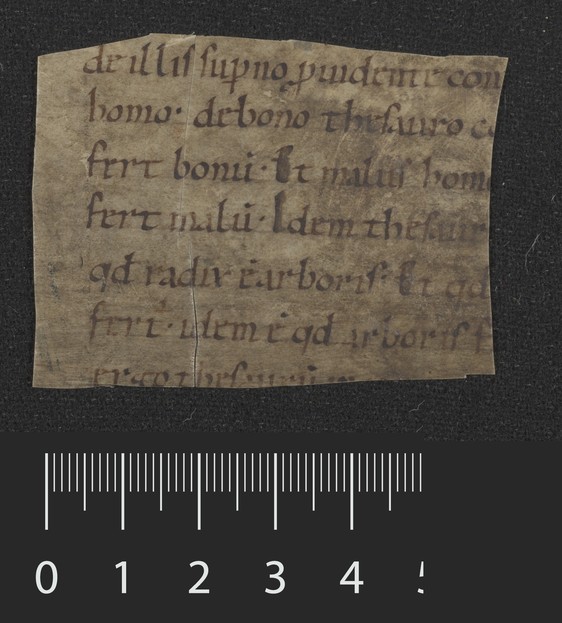 de illis supno puidente con
homo· debono thesauro co
fert bonū· Et malus homo
fert malū· Idem thesaur
qđ radix ē arboris· Et qđ
fert· idem ē qđ arboris f
ergo thesaurū
0 1 2 3 4